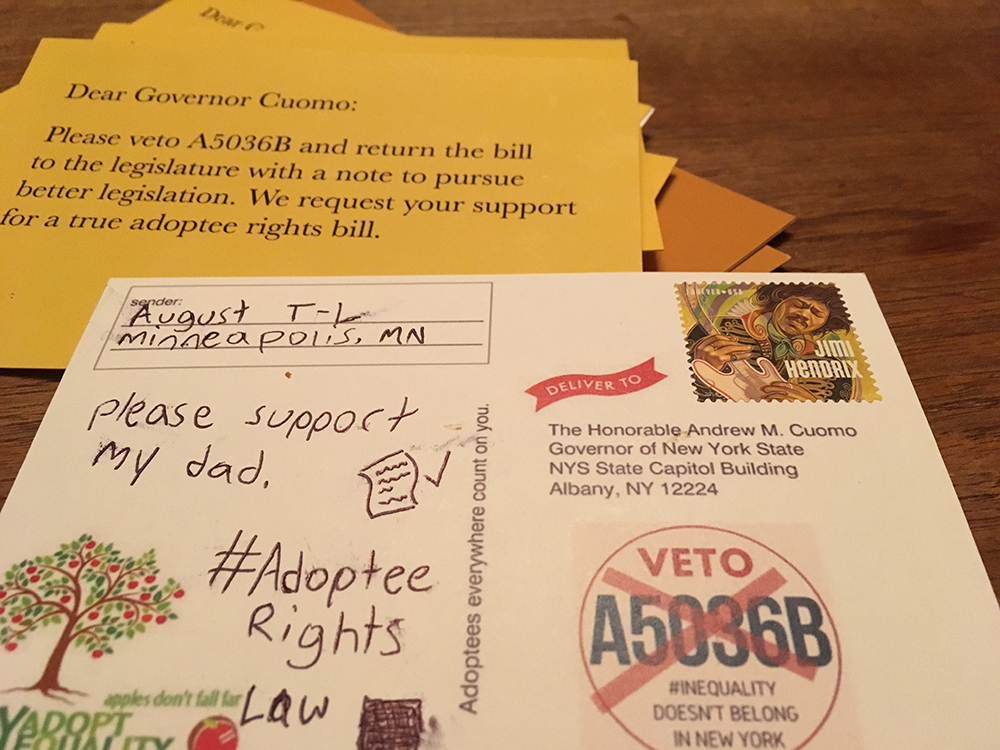 Dear
Dear Governor Cuomo:
Please veto A5036B and return the bill
to the legislature with a note to pursue
better legislation. We request your support
for a true adoptee rights bill.
sender:
August T-L
Minneapolis, MN
please support
my dad.
#Adoptee
Rights
Law
apples don't fall far
NYADOPT
EQUALITY
Adoptees everywhere count on you.
FOREVER USA
JIMI
HENDRIX
DELIVER TO
The Honorable Andrew M. Cuomo
Governor of New York State
NYS State Capitol Building
Albany, NY 12224
VETO
A5036B
#INEQUALITY
DOESN'T BELONG
IN NEW YORK